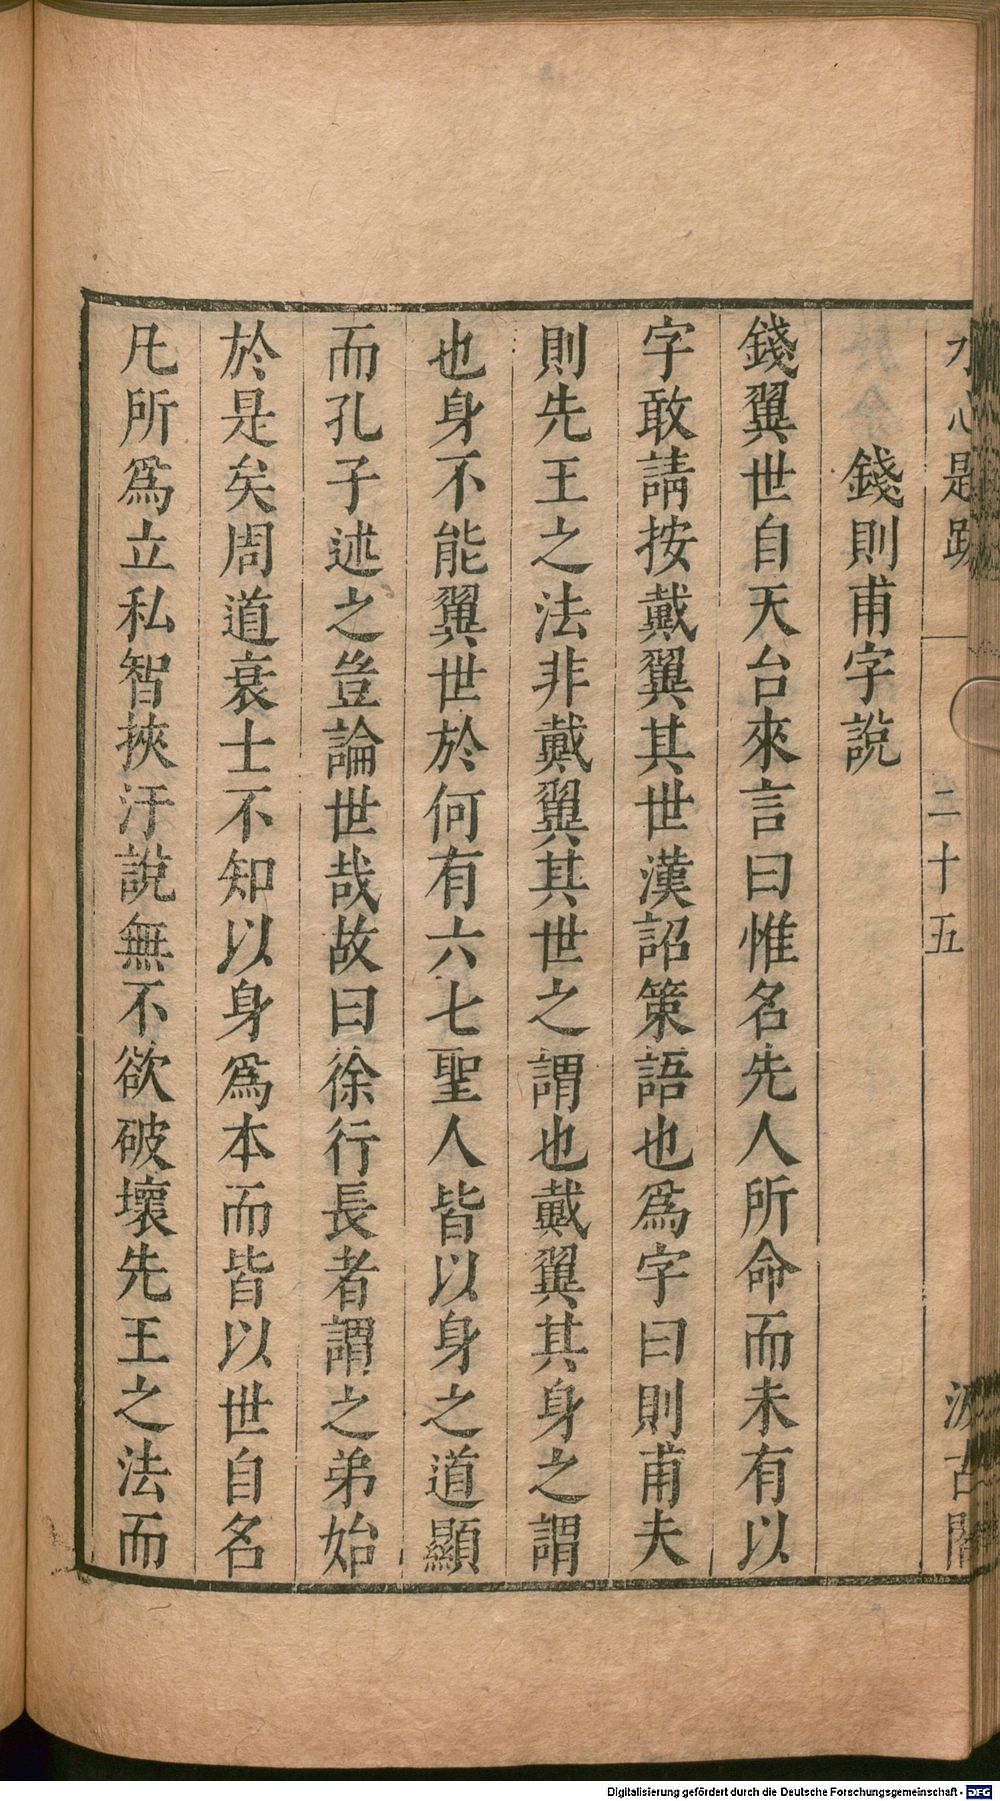 水心題跋
二十五
汲古閣
錢則甫字說
錢翼世自天台來言曰惟名先人所命而未有以
字敢請按戴翼其世漢詔策語也爲字曰則甫夫
則先王之法非戴翼其世之謂也戴翼其身之謂
也身不能翼世於何有六七聖人皆以身之道顯
而孔子述之豈論世哉故曰徐行長者謂之弟始
於是矣周道衰士不知以身爲本而皆以世自名
凡所爲立私智挾汙說無不欲破壞先王之法而
Digitalisierung gefördert durch die Deutsche Forschungsgemeinschaft - DFG